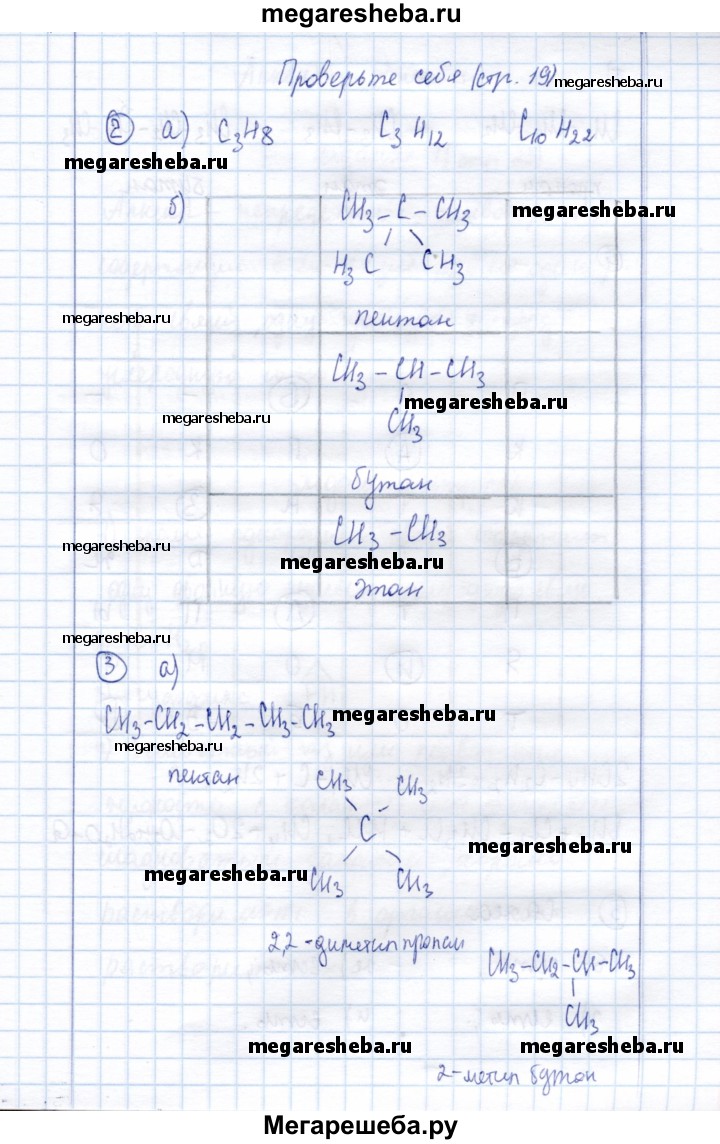 megaresheba.ru
Проверьте себя (стр. 19) megaresheba.ru
② а) C3H8 C3H12 C10H22
megaresheba.ru
б) CH3-C-CH3 megaresheba.ru
H3C CH3
megaresheba.ru пентан
CH3-CH-CH3
megaresheba.ru
megaresheba.ru CH3
бутан
CH3-CH3
megaresheba.ru
megaresheba.ru
этан
megaresheba.ru
③ а)
CH3-CH2-CH2-CH3-CH3 megaresheba.ru
megaresheba.ru
пентан CH3 CH3
C
megaresheba.ru
megaresheba.ru CH3 CH3
2,2-диметилпропан
CH3-CH2-CH-CH3
CH3
megaresheba.ru megaresheba.ru
2-метил бутан
Мегарешеба.ру